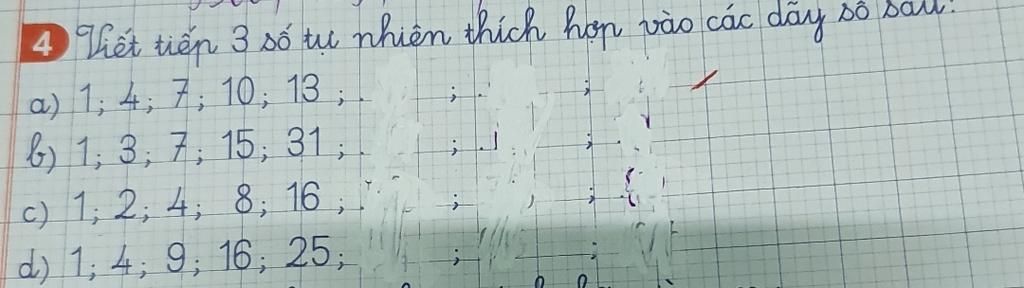 4 Viết tiếp 3 số tự nhiên thích hợp vào các dãy số sau:
a) 1; 4; 7; 10; 13; ; ;
b) 1; 3; 7; 15; 31; ; ;
c) 1; 2; 4; 8; 16; ; ;
d) 1; 4; 9; 16; 25; ; ;